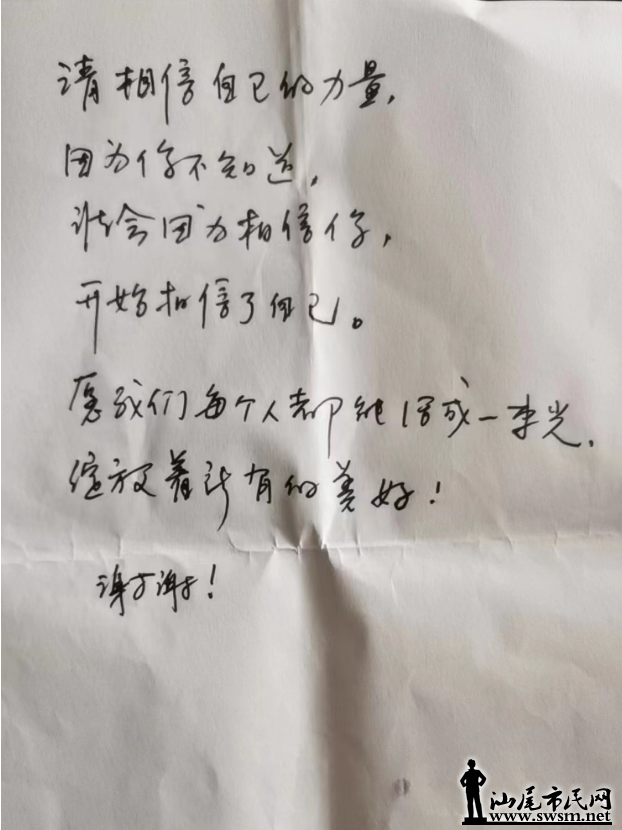 请相信自己的力量,
因为你不知道,
谁会因为相信你,
开始相信了自己。
愿我们每个人都能活成一束光,
绽放着所有的美好!
谢谢!
汕尾市民网
www.swsm.net